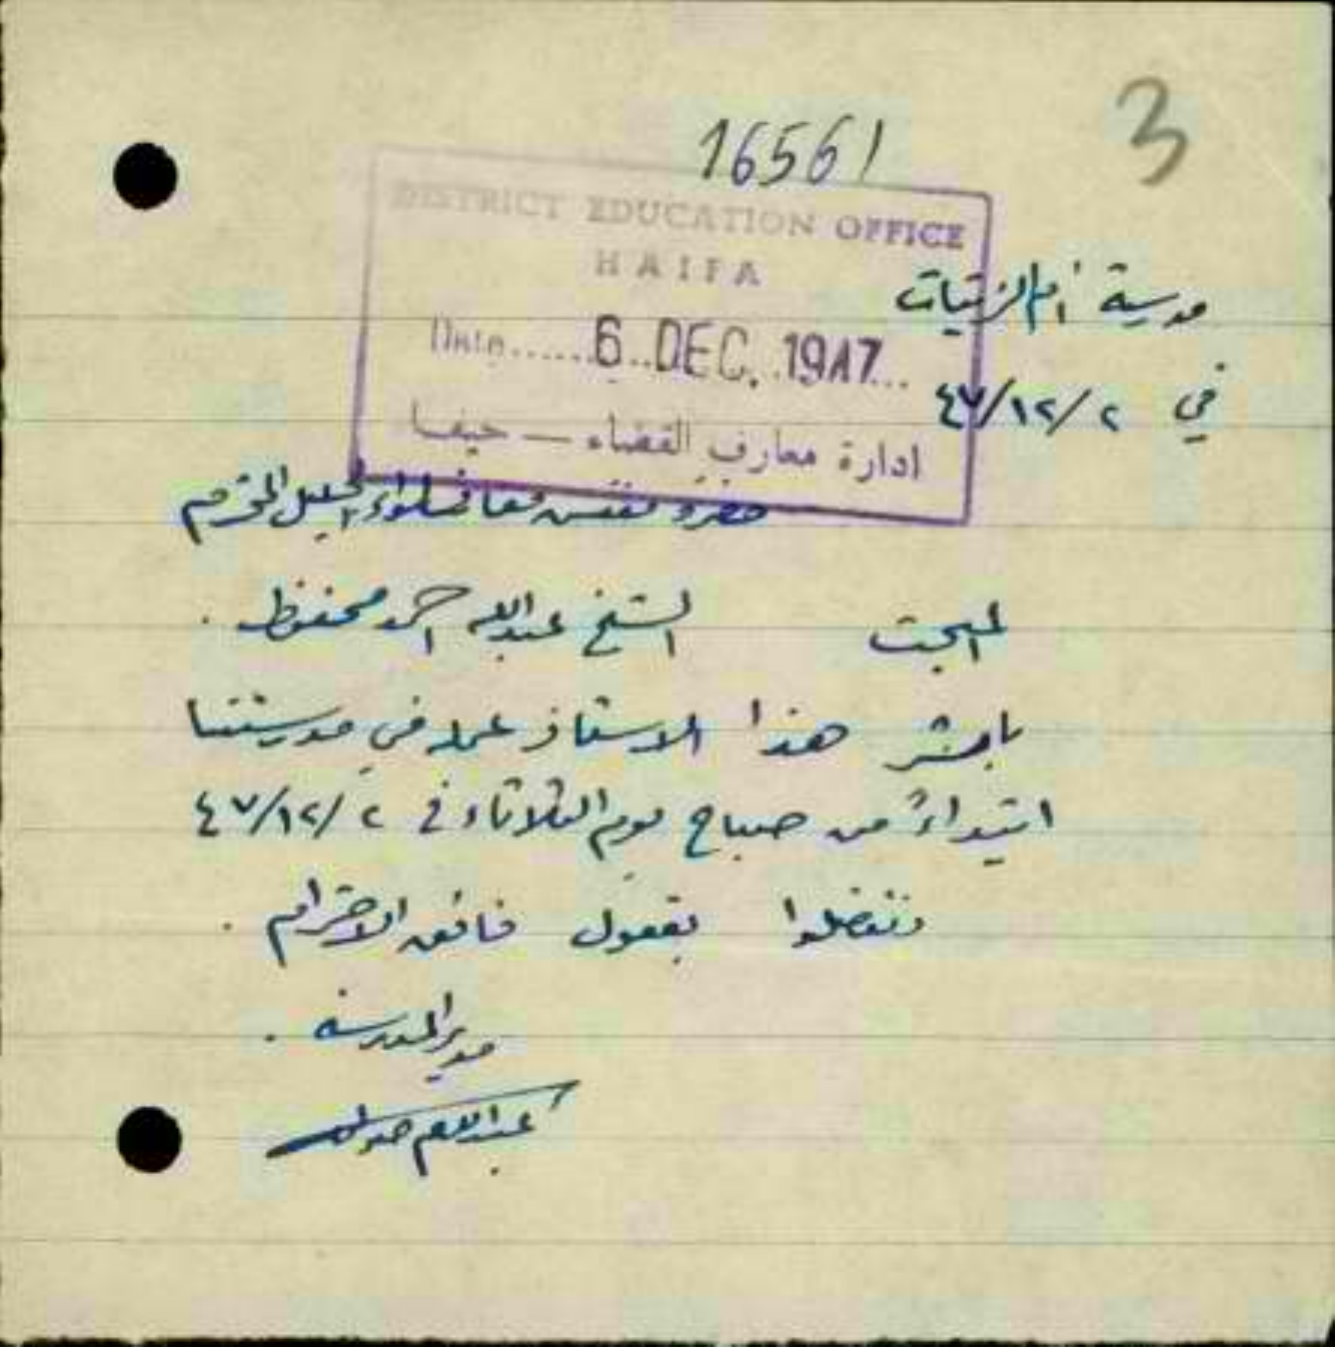 3
16561
DISTRICT EDUCATION OFFICE
HAIFA
Date......6..DEC..1947...
ادارة معارف القضاء — حيفا
مدرسة أم الزينات
في ٢/١٢/٤٧
حضرة مفتش معارف لواء الجليل المحترم
المبحث الشيخ عبدالله احمد محفوظ.
باشر هذا الاستاذ عمله في مدرستنا
ابتداءً من صباح يوم الثلاثاء في ٢/١٢/٤٧
وتفضلوا بقبول فائق الاحترام.
مدير المدرسة.